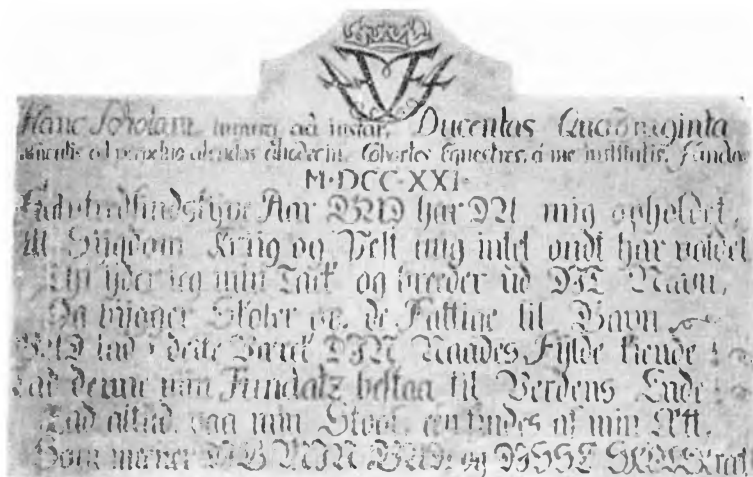 Hanc Scholam ad instar, Ducentas Quadraginta
Cohortes Equestres, à me institutis,
M·DCC·XXI·
Aar GUD har DU mig opholdet,
At Sygdom Kriig og Pest mig intet ondt har voldet
Thi yder jeg min Tack og breeder ud DIT Navn,
Og bygger Skoler op, de Fattige til Gavn
GUD lad i dette Verck DIN Naades Fylde kiende
Lad denne min Fundatz bestaa til Verdens Ende
Lad altid paa min Stool, een findes af min Ætt,
Som meener DIG MIN GUD, og